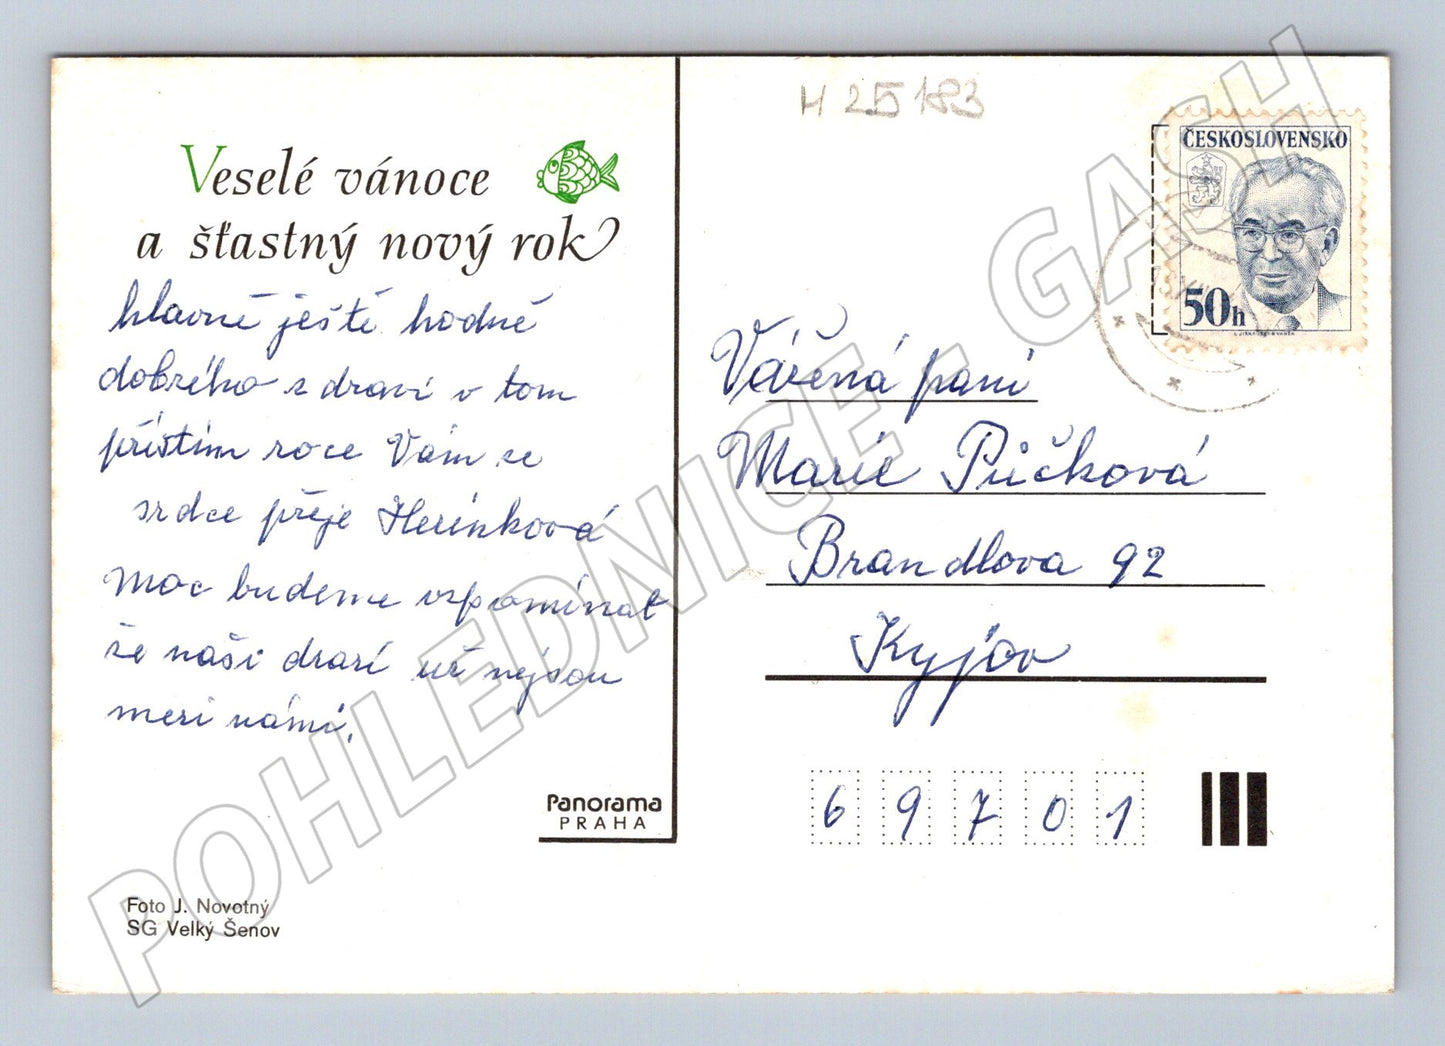 Veselé vánoce
a šťastný nový rok
hlavně ještě hodně
dobrého zdraví v tom
přístím roce Vám ze
srdce přeje Herinková
Moc budeme vzpomínat
že naši drazí už nejsou
mezi námi.
Panorama
PRAHA
Foto J. Novotný
SG Velký Šenov
H 25183
ČESKOSLOVENSKO
50h
Vážená paní
Marie Púčková
Brandlova 92
Kyjov
69701
POHLEDNICE - GASH